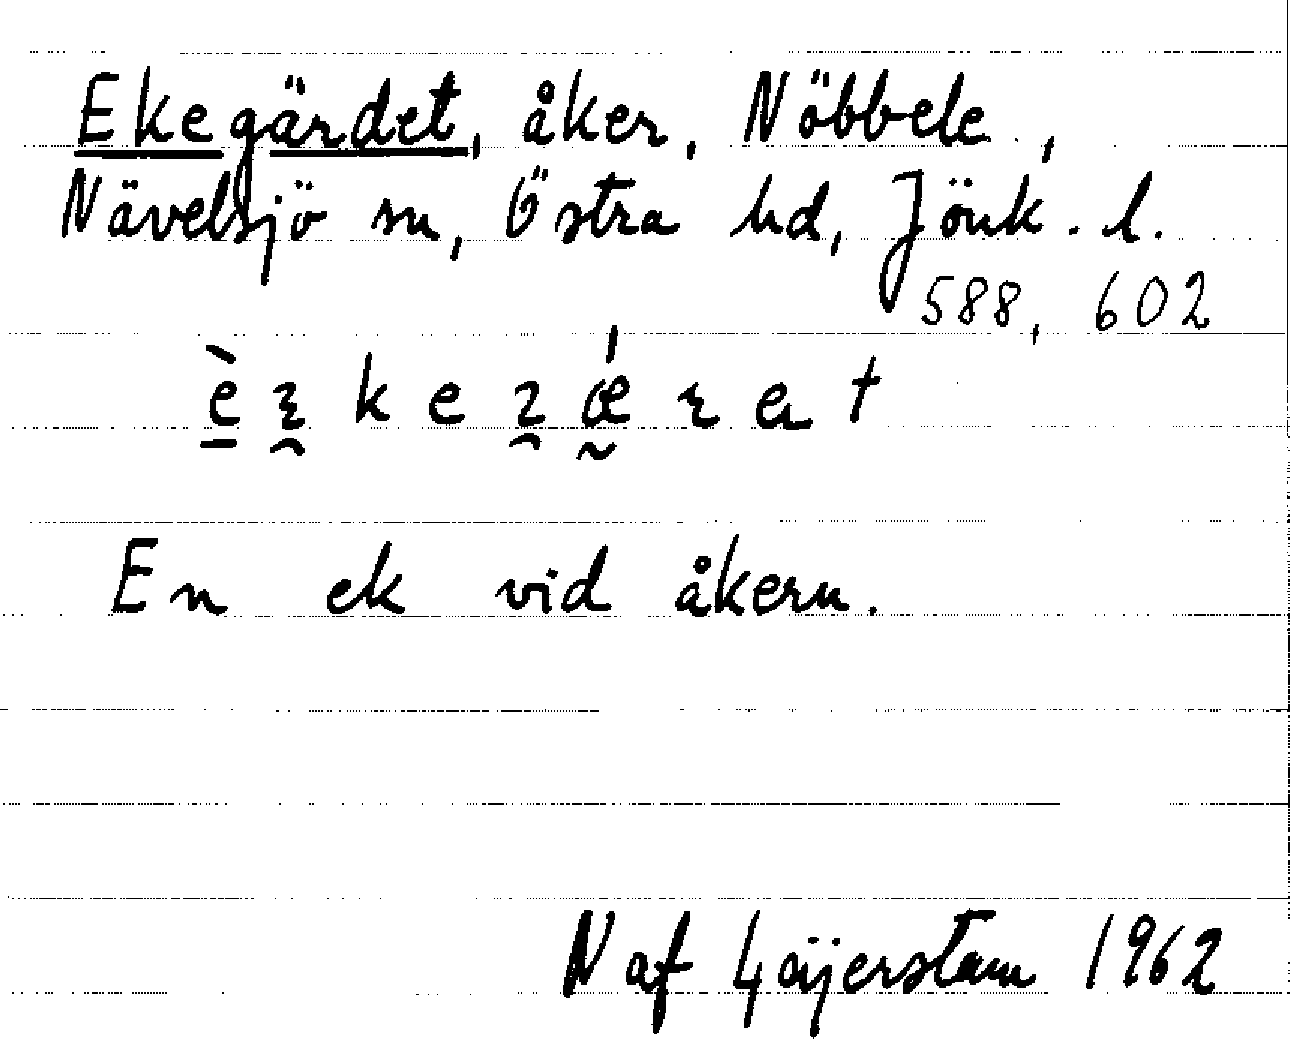 Ekegärdet, åker, Nöbbele,
Nävelsjö sn, Östra hd, Jönk. l.
588, 602
En ek vid åkern.
N af Geijerstam 1962